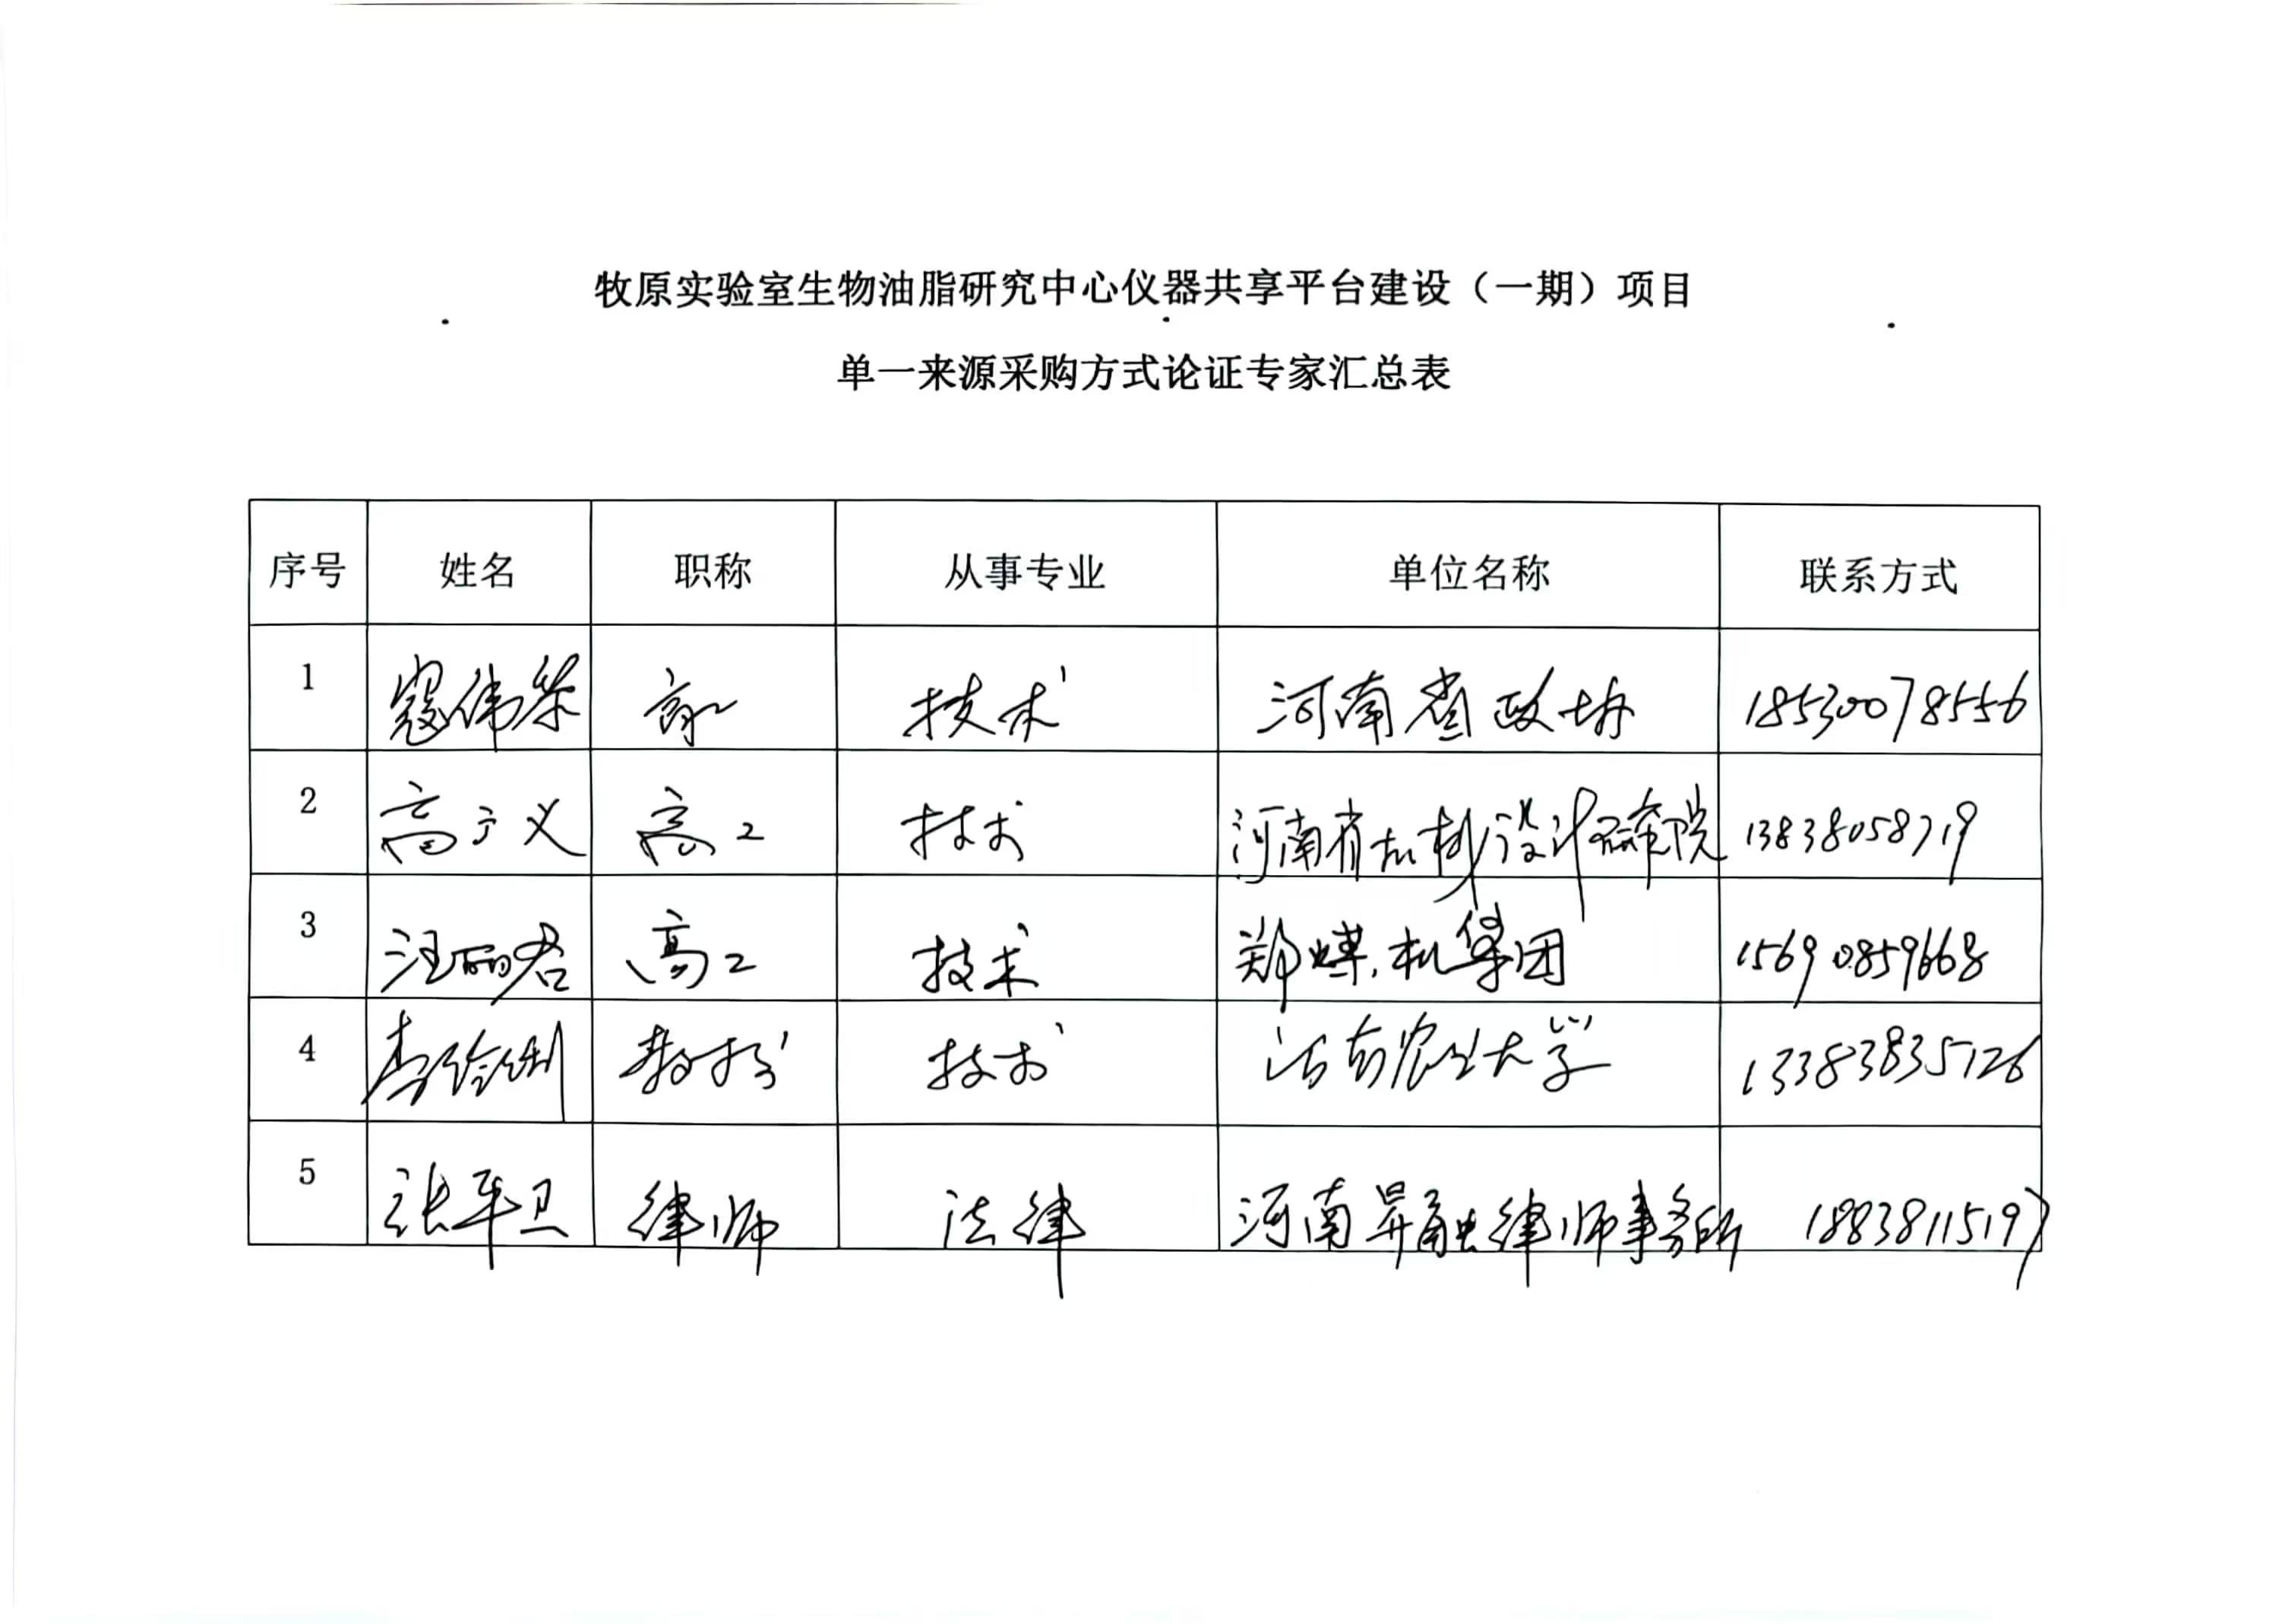 牧原实验室生物油脂研究中心仪器共享平台建设（一期）项目
单一来源采购方式论证专家汇总表
序号 姓名 职称 从事专业 单位名称 联系方式
1 寇伟荣 高工 技术 河南省政协 18530078556
2 高广义 高工 技术 河南省机械设计研究院 13838058719
3 汪丽君 高工 技术 郑煤机集团 15690859668
4 教授 技术 河南农业大学 13383835126
5 张军卫 律师 法律 河南昇融律师事务所 18838115197